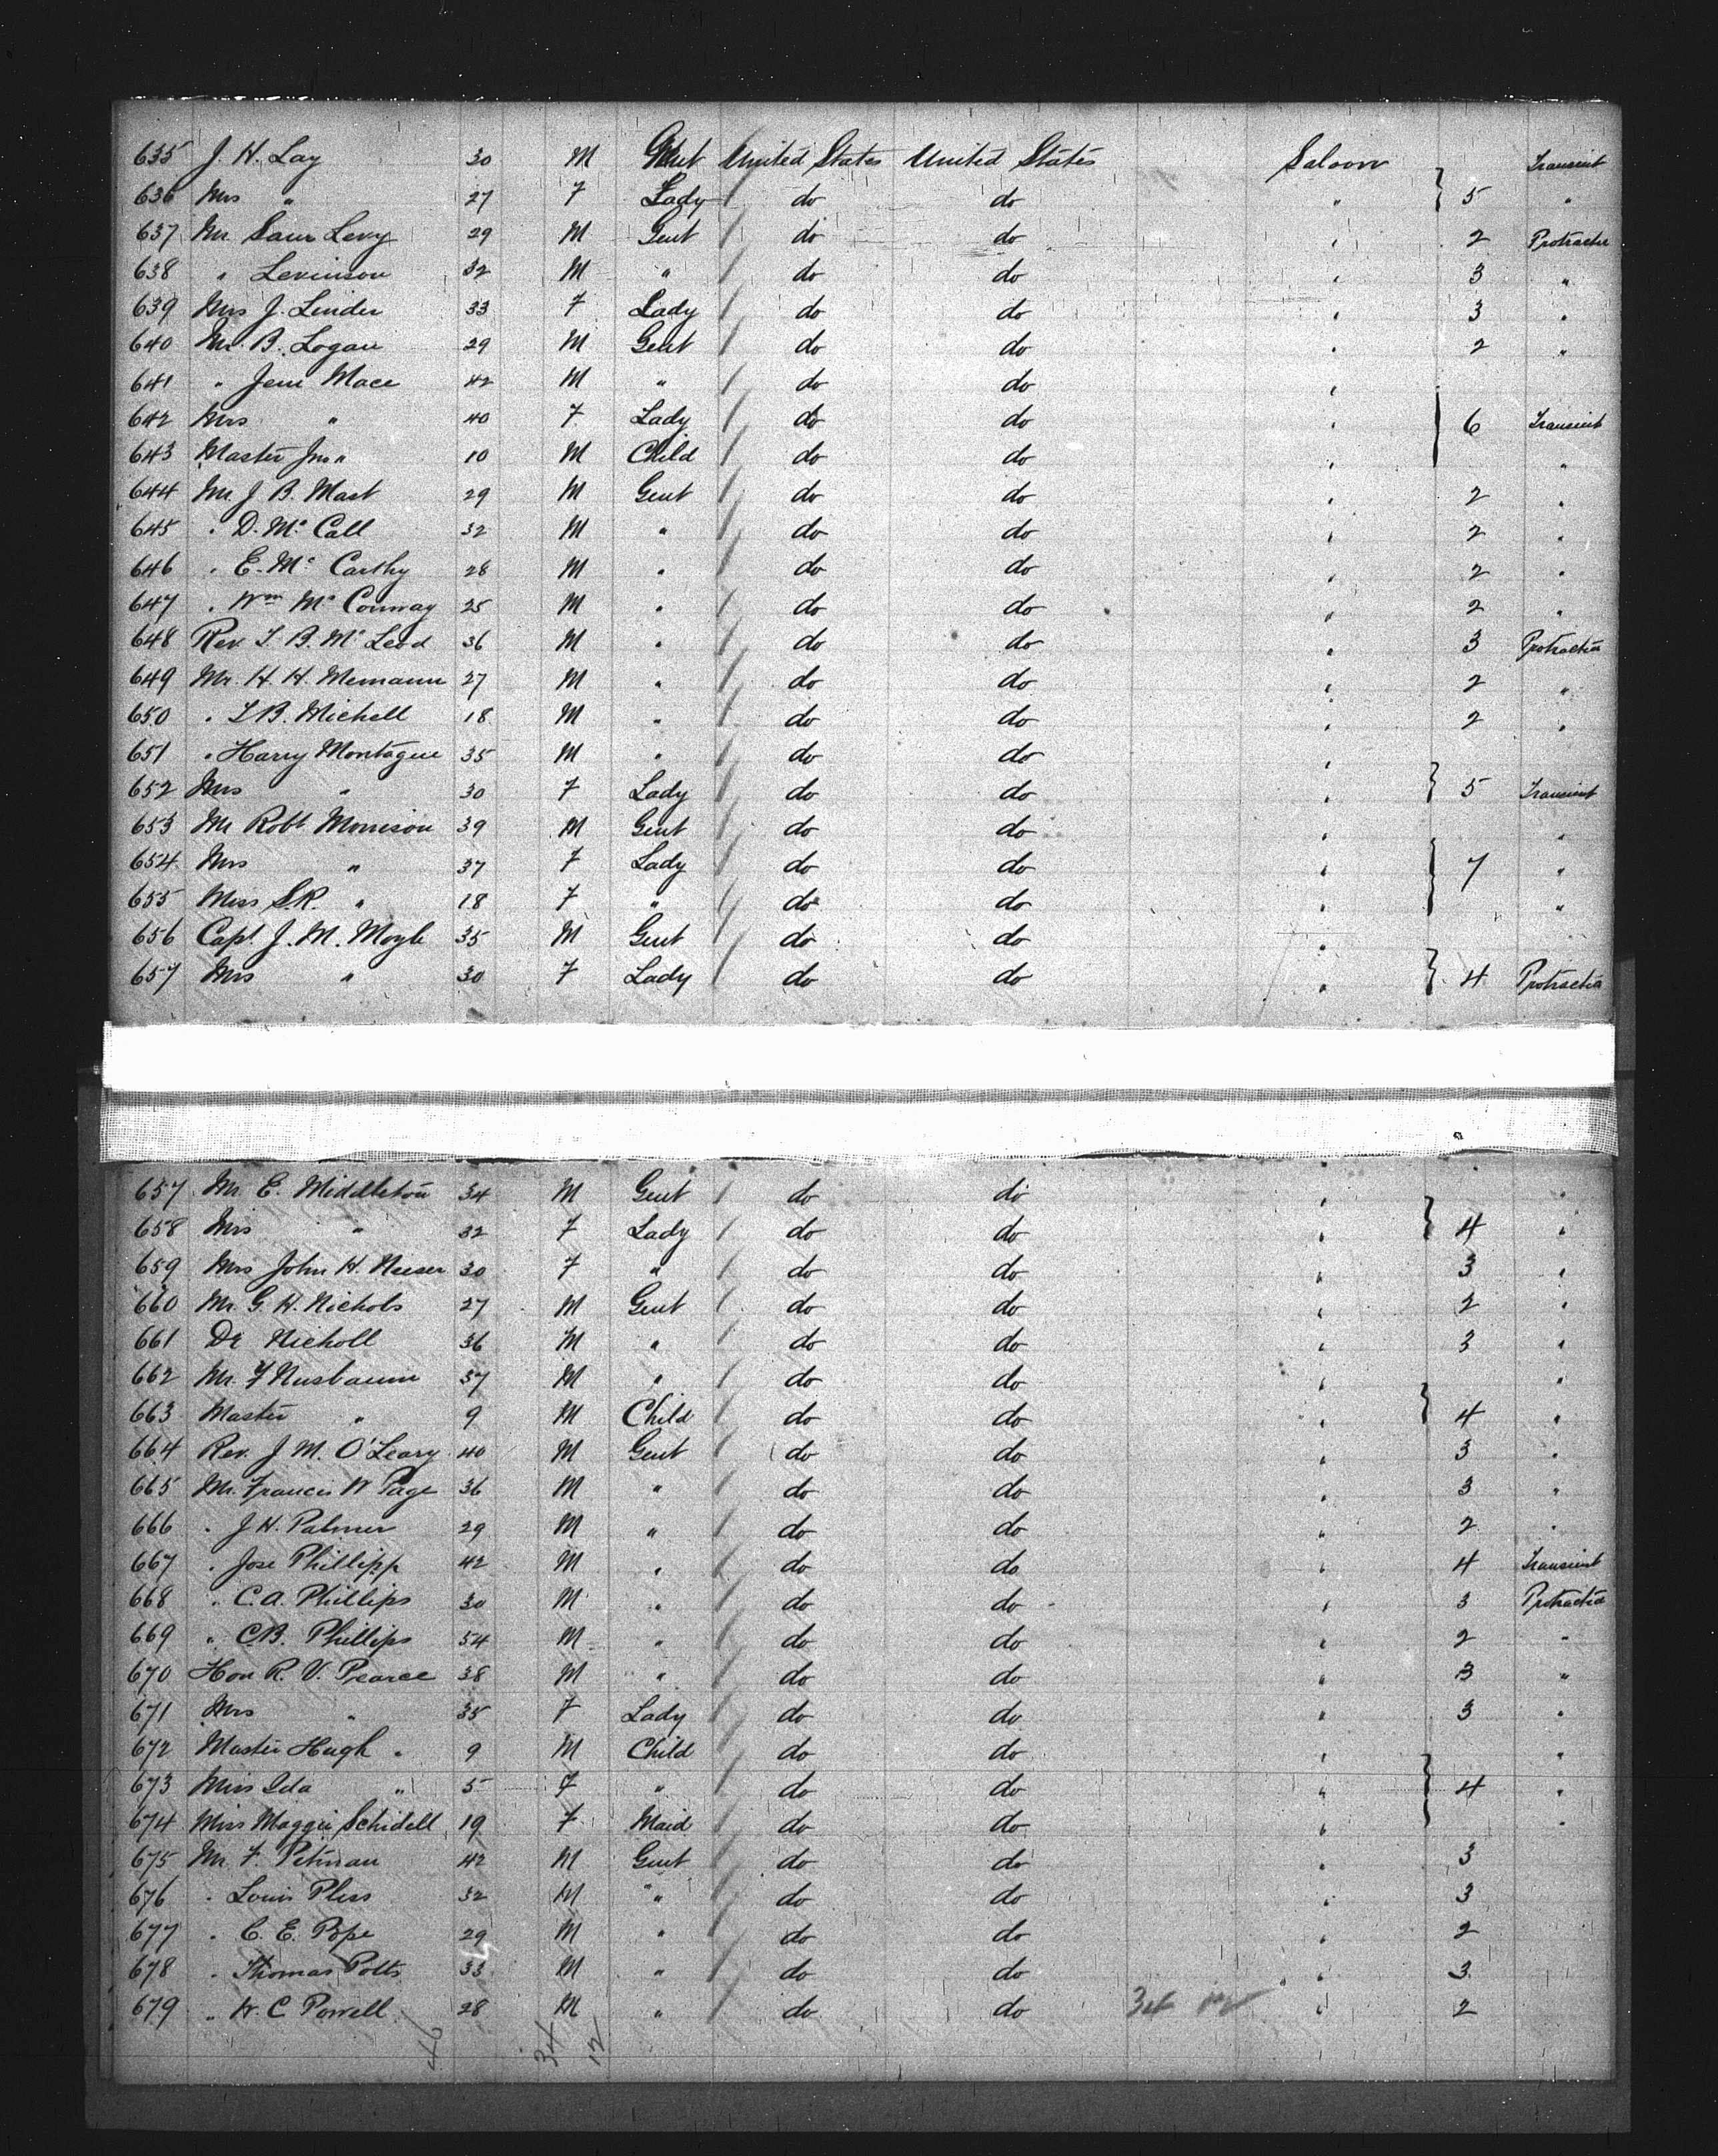 635 J. H. Lay 30 M Gent United States United States Saloon Transient
636 Mrs " 27 F Lady do do " } 5 "
637 Mr. Saml Levy 29 M Gent do do " 2 Protracted
638 " Levinson 32 M " do do " 3 "
639 Mrs J. Linder 33 F Lady do do " 3 "
640 Mr. B. Logan 29 M Gent do do " 2 "
641 " Jem Mace 42 M " do do "
642 Mrs " 40 F Lady do do " 6 Transient
643 Master Jno " 10 M Child do do " "
644 Mr. J. B. Mast 29 M Gent do do " 2 "
645 " D. Mc Call 32 M " do do " 2 "
646 " E. Mc Carthy 28 M " do do " 2 "
647 " Wm Mc Conway 25 M " do do " 2 "
648 Rev. T. B. Mc Leod 36 M " do do " 3 Protracted
649 Mr. H. H. Memann 27 M " do do " 2 "
650 " T B. Michell 18 M " do do " 2 "
651 " Harry Montague 35 M " do do "
652 Mrs " 30 F Lady do do " } 5 Transient
653 Mr Robt Morrison 39 M Gent do do " "
654 Mrs " 37 F Lady do do " } 7 "
655 Miss S.R. " 18 F " do do " "
656 Capt. J. M. Moyle 35 M Gent do do "
657 Mrs " 30 F Lady do do " } 4 Protracted
657 Mr. E. Middleton 34 M Gent do do " "
658 Mrs " 32 F Lady do do " } 4 "
659 Mrs John H. Neeser 30 F " do do " 3 "
660 Mr. G. H. Nichols 27 M Gent do do " 2 "
661 Dr Nicholl 36 M " do do " 3 "
662 Mr. F Nusbaum 37 M " do do " "
663 Master " 9 M Child do do " } 4 "
664 Rev. J. M. O'Leary 40 M Gent do do " 3 "
665 Mr. Francis W Page 36 M " do do " 3 "
666 " J H. Palmer 29 M " do do " 2 "
667 " Jose Phillipp 42 M " do do " 4 Transient
668 " C. A. Phillips 30 M " do do " 3 Protracted
669 " C.B. Phillips 54 M " do do " 2 "
670 Hon R. V. Pearce 38 M " do do " 3 "
671 Mrs " 35 F Lady do do " 3 "
672 Master Hugh " 9 M Child do do " "
673 Miss Ida " 5 F " do do " } 4 "
674 Miss Maggie Schidell 19 F Maid do do " "
675 Mr. F. Pitman 42 M Gent do do " 3
676 " Louis Pless 32 M " do do " 3
677 " C. E. Pope 29 M " do do " 2
678 " Thomas Potts 33 M " do do " 3
679 " W. C Powell 28 M " do do " 2
46 34 12